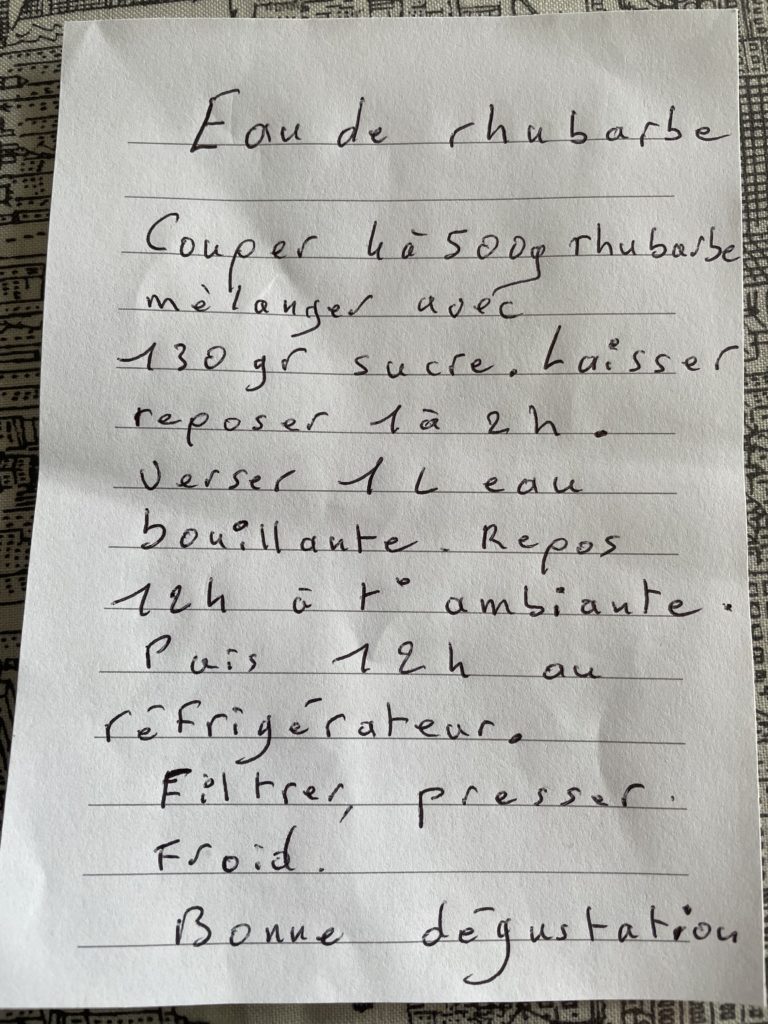 Eau de rhubarbe
Couper 4 à 500g rhubarbe
mèlanger avec
130 gr sucre. Laisser
reposer 1 à 2 h.
Verser 1 L eau
bouillante. Repos
12h à t° ambiante.
Puis 12h au
réfrigérateur.
Filtrer, presser.
Froid.
Bonne dégustation